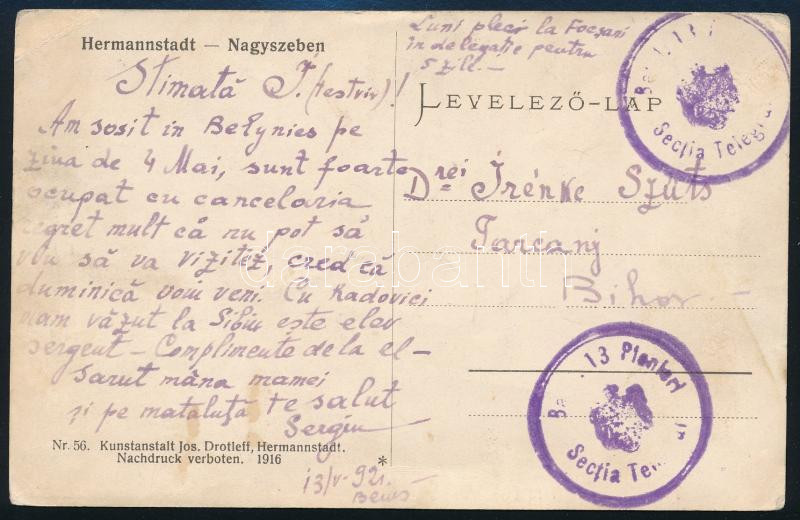 Hermannstadt — Nagyszeben
Luni plec la Focșani
in delegație pentru
5 zile. —
Stimată I. (testvir)!
Am sosit in Belynies pe
ziua de 4 Mai, sunt foarte
ocupat cu cancelaria
regret mult că nu pot să
viu să va vizitez, cred că
duminică voiu veni. Cu Radovici
mam văzut la Sibiu este elev
sergent — Complimente de la el —
Sarut mâna mamei
și pe mataluță te salut
Sergiu
13/V-921.
Beius
LEVELEZŐ-LAP
Drei Irénke Szüts
Tarcanj
Bihor. —
13
Secția Telegra
13 Pionieri
Secția Tel
Nr. 56. Kunstanstalt Jos. Drotleff, Hermannstadt.
Nachdruck verboten. 1916 *
darabanth